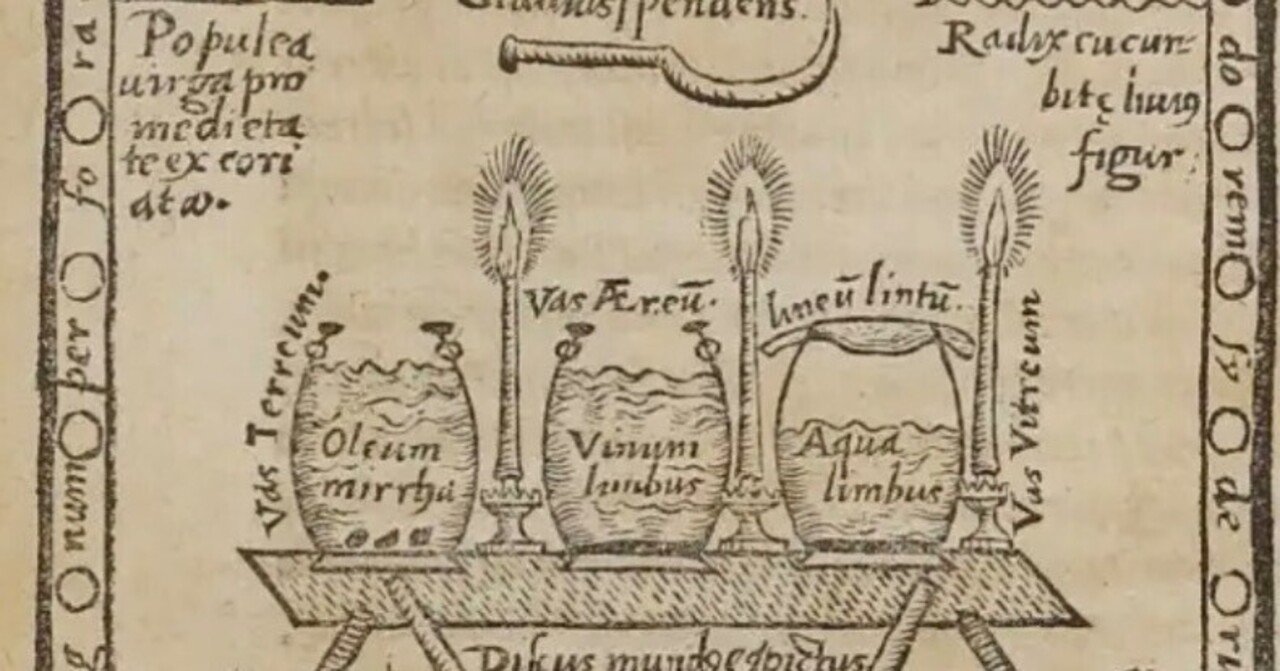 Gladius pendens.
Populea
uirga pro
medieta
te ex cori
ata.
Radix cucur
bitę huiꝰ
figur:
Vas Terreum.
Vas Æreū.
lineū lintū.
Vas Vitreum
Oleum
mirrha
Vinum
limbus
Aqua
limbus
Discus mundo
pictus
g O num O per O fo O ra
do O rem O sy O de O ri